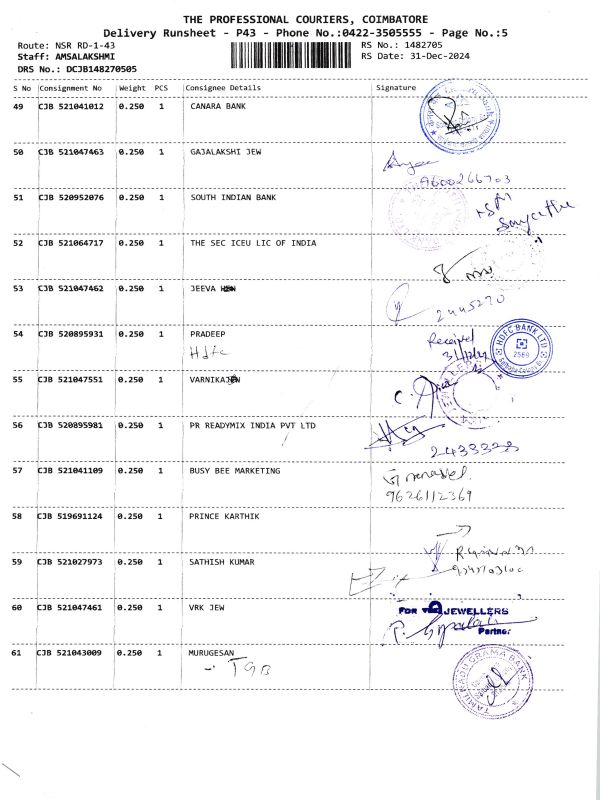 THE PROFESSIONAL COURIERS, COIMBATORE
Delivery Runsheet - P43 - Phone No.:0422-3505555 - Page No.:5
Route: NSR RD-1-43
RS No.: 1482705
Staff: AMSALAKSHMI
RS Date: 31-Dec-2024
DRS No.: DCJB148270505
S No Consignment No Weight PCS Consignee Details Signature
49 CJB 521041012 0.250 1 CANARA BANK
50 CJB 521047463 0.250 1 GAJALAKSHI JEW
A600266703
51 CJB 520952076 0.250 1 SOUTH INDIAN BANK
52 CJB 521064717 0.250 1 THE SEC ICEU LIC OF INDIA
53 CJB 521047462 0.250 1 JEEVA
2445270
54 CJB 520895931 0.250 1 PRADEEP
Hdfc
Received
HDFC BANK LTD
2569
55 CJB 521047551 0.250 1 VARNIKA
56 CJB 520895981 0.250 1 PR READYMIX INDIA PVT LTD
2433328
57 CJB 521041109 0.250 1 BUSY BEE MARKETING
9626112369
58 CJB 519691124 0.250 1 PRINCE KARTHIK
59 CJB 521027973 0.250 1 SATHISH KUMAR
60 CJB 521047461 0.250 1 VRK JEW
FOR JEWELLERS
Partner
61 CJB 521043009 0.250 1 MURUGESAN
TGB
TAMIL NADU GRAMA BANK